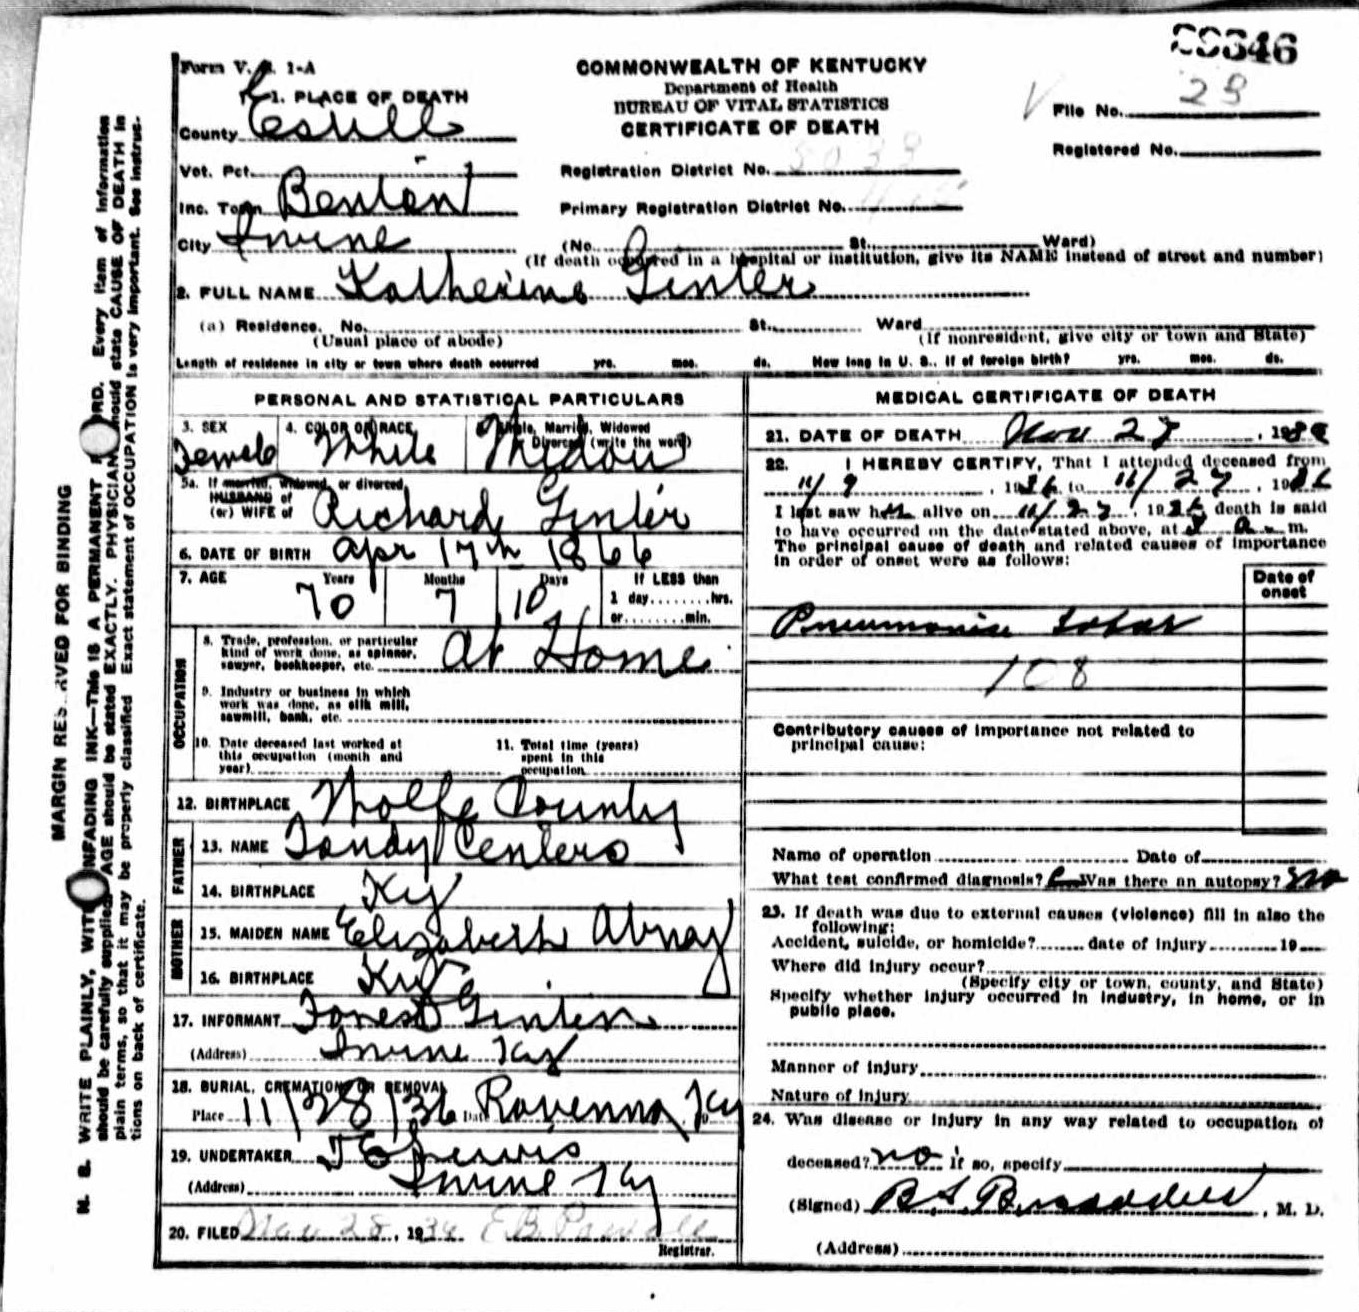 Form V. S. 1-A
COMMONWEALTH OF KENTUCKY
Department of Health
BUREAU OF VITAL STATISTICS
CERTIFICATE OF DEATH
File No. 28
Registered No.
1. PLACE OF DEATH
County Estill
Vot. Pct.
Registration District No.
Inc. Town Benton
Primary Registration District No.
City Irvine (No. St. Ward)
(If death occurred in a hospital or institution, give its NAME instead of street and number)
2. FULL NAME Katherine Ginter
(a) Residence. No. St. Ward
(Usual place of abode) (If nonresident, give city or town and State)
Length of residence in city or town where death occurred yrs. mos. ds. How long in U. S., if of foreign birth? yrs. mos. ds.
PERSONAL AND STATISTICAL PARTICULARS
3. SEX 4. COLOR OR RACE Single, Married, Widowed
or Divorced (write the word)
Female White Widow
5a. If married, widowed, or divorced,
HUSBAND of
(or) WIFE of Richard Ginter
6. DATE OF BIRTH Apr 17th 1866
7. AGE Years Months Days If LESS than
70 7 10 1 day hrs.
or min.
OCCUPATION
8. Trade, profession, or particular
kind of work done, as spinner,
sawyer, bookkeeper, etc. At Home
9. Industry or business in which
work was done, as silk mill,
sawmill, bank, etc.
10. Date deceased last worked at
this occupation (month and
year)
11. Total time (years)
spent in this
occupation
12. BIRTHPLACE Wolfe County
FATHER
13. NAME Tandy Centers
14. BIRTHPLACE Ky
MOTHER
15. MAIDEN NAME Elizabeth Abnay
16. BIRTHPLACE Ky
17. INFORMANT Ginter
(Address) Irvine Ky
18. BURIAL, CREMATION OR REMOVAL
Place 11/28/36 Date Ravenna Ky
19. UNDERTAKER Lewis
(Address) Irvine Ky
20. FILED Nov 28, 1936
Registrar.
MEDICAL CERTIFICATE OF DEATH
21. DATE OF DEATH Nov 27, 1936
22. I HEREBY CERTIFY, That I attended deceased from
11/9, 1936 to 11/27, 1936
I last saw her alive on 11/27, 1936, death is said
to have occurred on the date stated above, at a. m.
The principal cause of death and related causes of importance
in order of onset were as follows:
Date of
onset
Pneumonia lobar
108
Contributory causes of importance not related to
principal cause:
Name of operation Date of
What test confirmed diagnosis? Was there an autopsy? No
23. If death was due to external causes (violence) fill in also the
following:
Accident, suicide, or homicide? date of injury 19
Where did injury occur?
(Specify city or town, county, and State)
Specify whether injury occurred in industry, in home, or in
public place.
Manner of injury
Nature of injury
24. Was disease or injury in any way related to occupation of
deceased? no if so, specify
(Signed) , M. D.
(Address)
MARGIN RESERVED FOR BINDING
N. B. WRITE PLAINLY, WITH UNFADING INK—THIS IS A PERMANENT RECORD. Every item of information
should be carefully supplied. AGE should be stated EXACTLY. PHYSICIANS should state CAUSE OF DEATH in
plain terms, so that it may be properly classified. Exact statement of OCCUPATION is very important. See instruc-
tions on back of certificate.